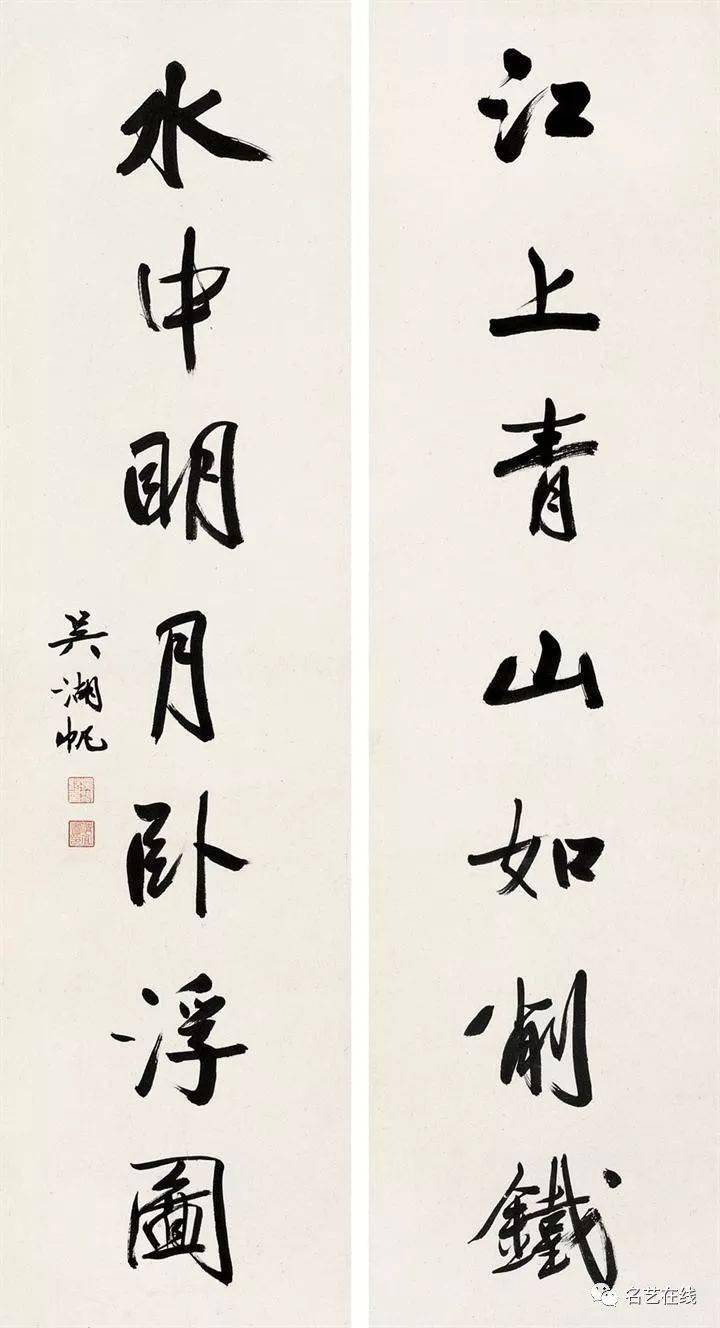 江上青山如削鐵
水中明月卧浮圖
吳湖帆
名艺在线